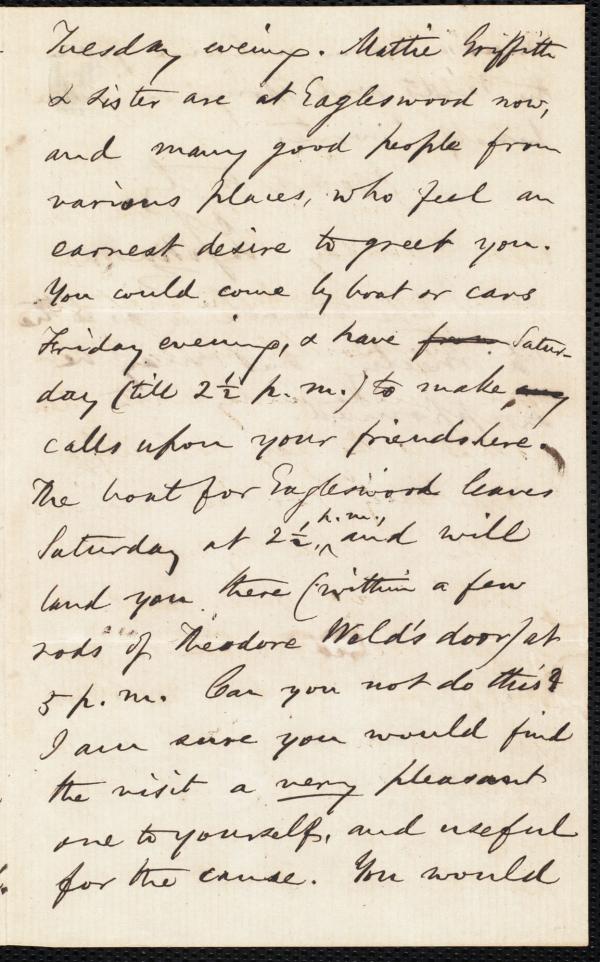 Tuesday evening. Mattie Griffith
& sister are at Eagleswood now,
and many good people from
various places, who feel an
earnest desire to greet you.
You could come by boat or cars
Friday evening, & have from Satur-
day (till 2½ p.m.) to make any
calls upon your friends here.
The boat for Eagleswood leaves
Saturday at 2½, p.m., and will
land you there (within a few
rods of Theodore Weld's door) at
5 p.m. Can you not do this?
I am sure you would find
the visit a very pleasant
one to yourself, and useful
for the cause. You would